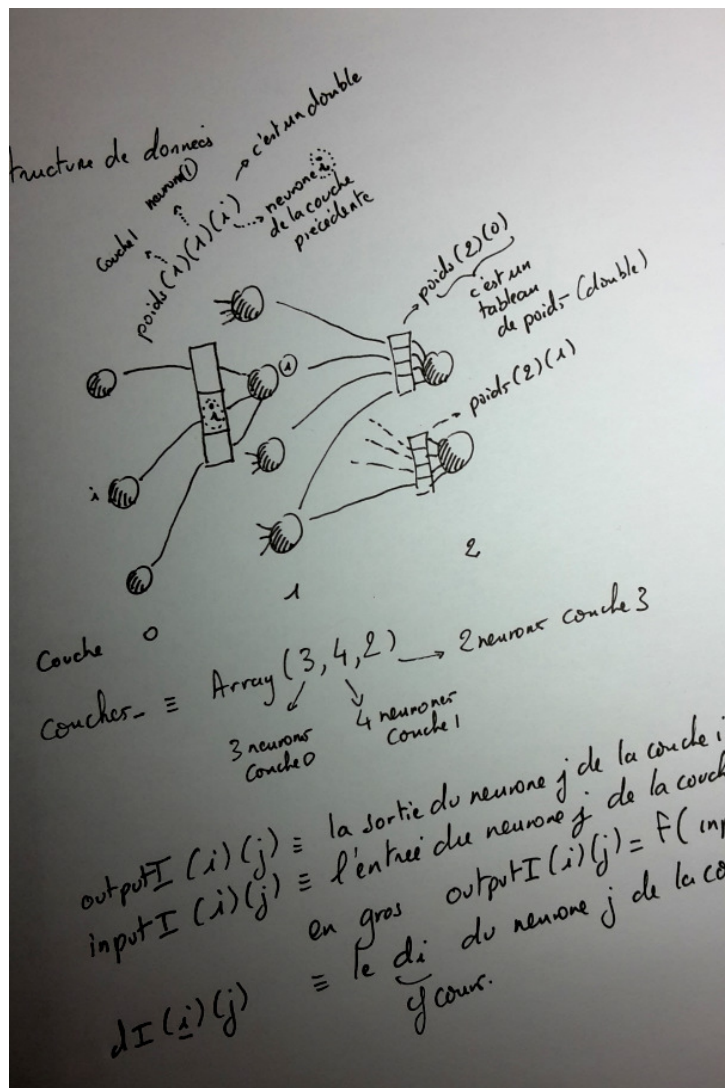 tructure de données
c'est un double
neurone 1
couche 1
poids (1)(1)(i)
neurone i
de la couche
précédente
poids (2)(0)
c'est un
tableau
de poids (double)
1
i
poids (2)(1)
i
2
1
Couche 0
couches_ ≡ Array (3,4,2) → 2 neurones couche 3
3 neurones
couche 0
4 neurones
couche 1
outputI (i)(j) ≡ la sortie du neurone j de la couche i
inputI (i)(j) ≡ l'entrée du neurone j de la couch
en gros outputI (i)(j) = f( inp
dI (i)(j) ≡ le di du neurone j de la co
cf cours.